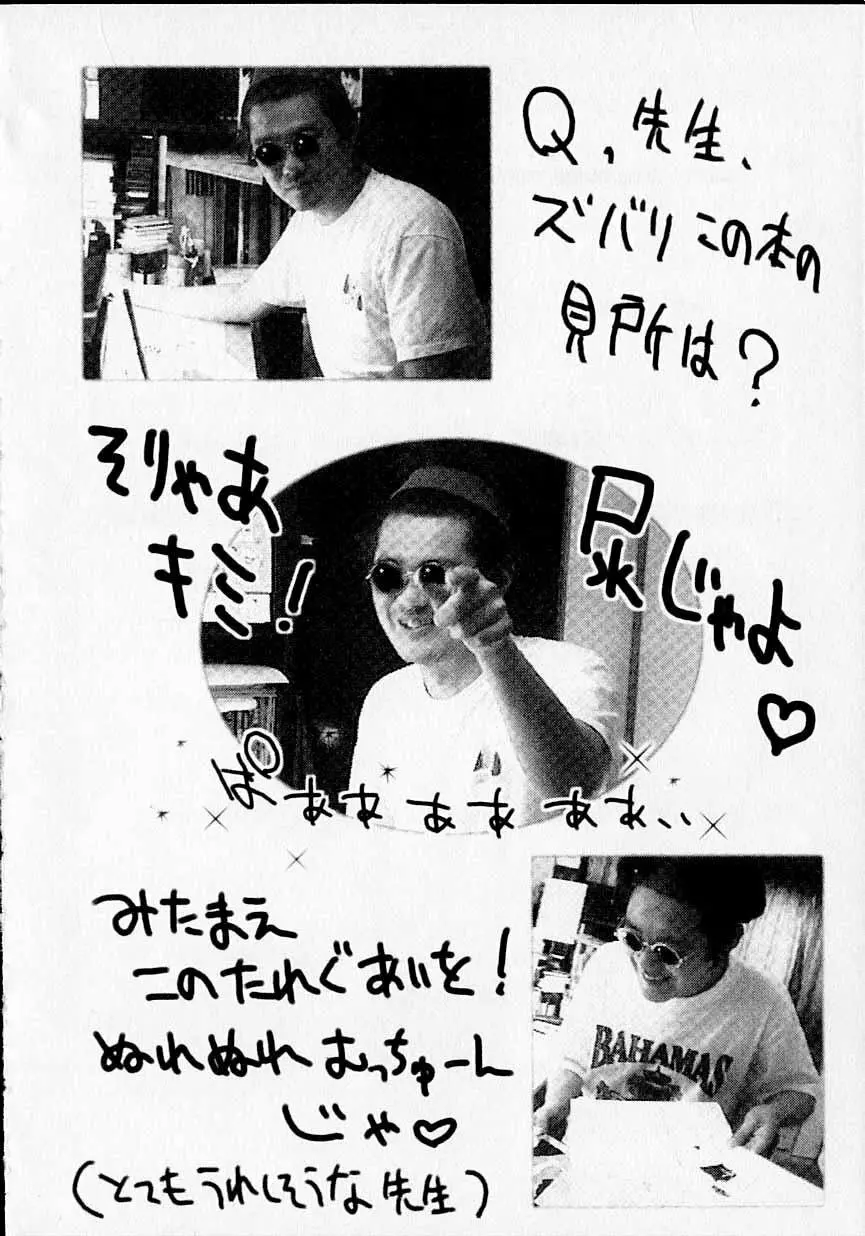 Q、先生、
ズバリこの本の
見所は?
そりゃあ
キミ!
尿じゃよ♡
ぱぁぁぁぁぁぁ、、
みたまえ
このたれぐあいを!
ぬれぬれむっちゅーん
じゃ♡
BAHAMAS
(とてもうれしそうな先生)